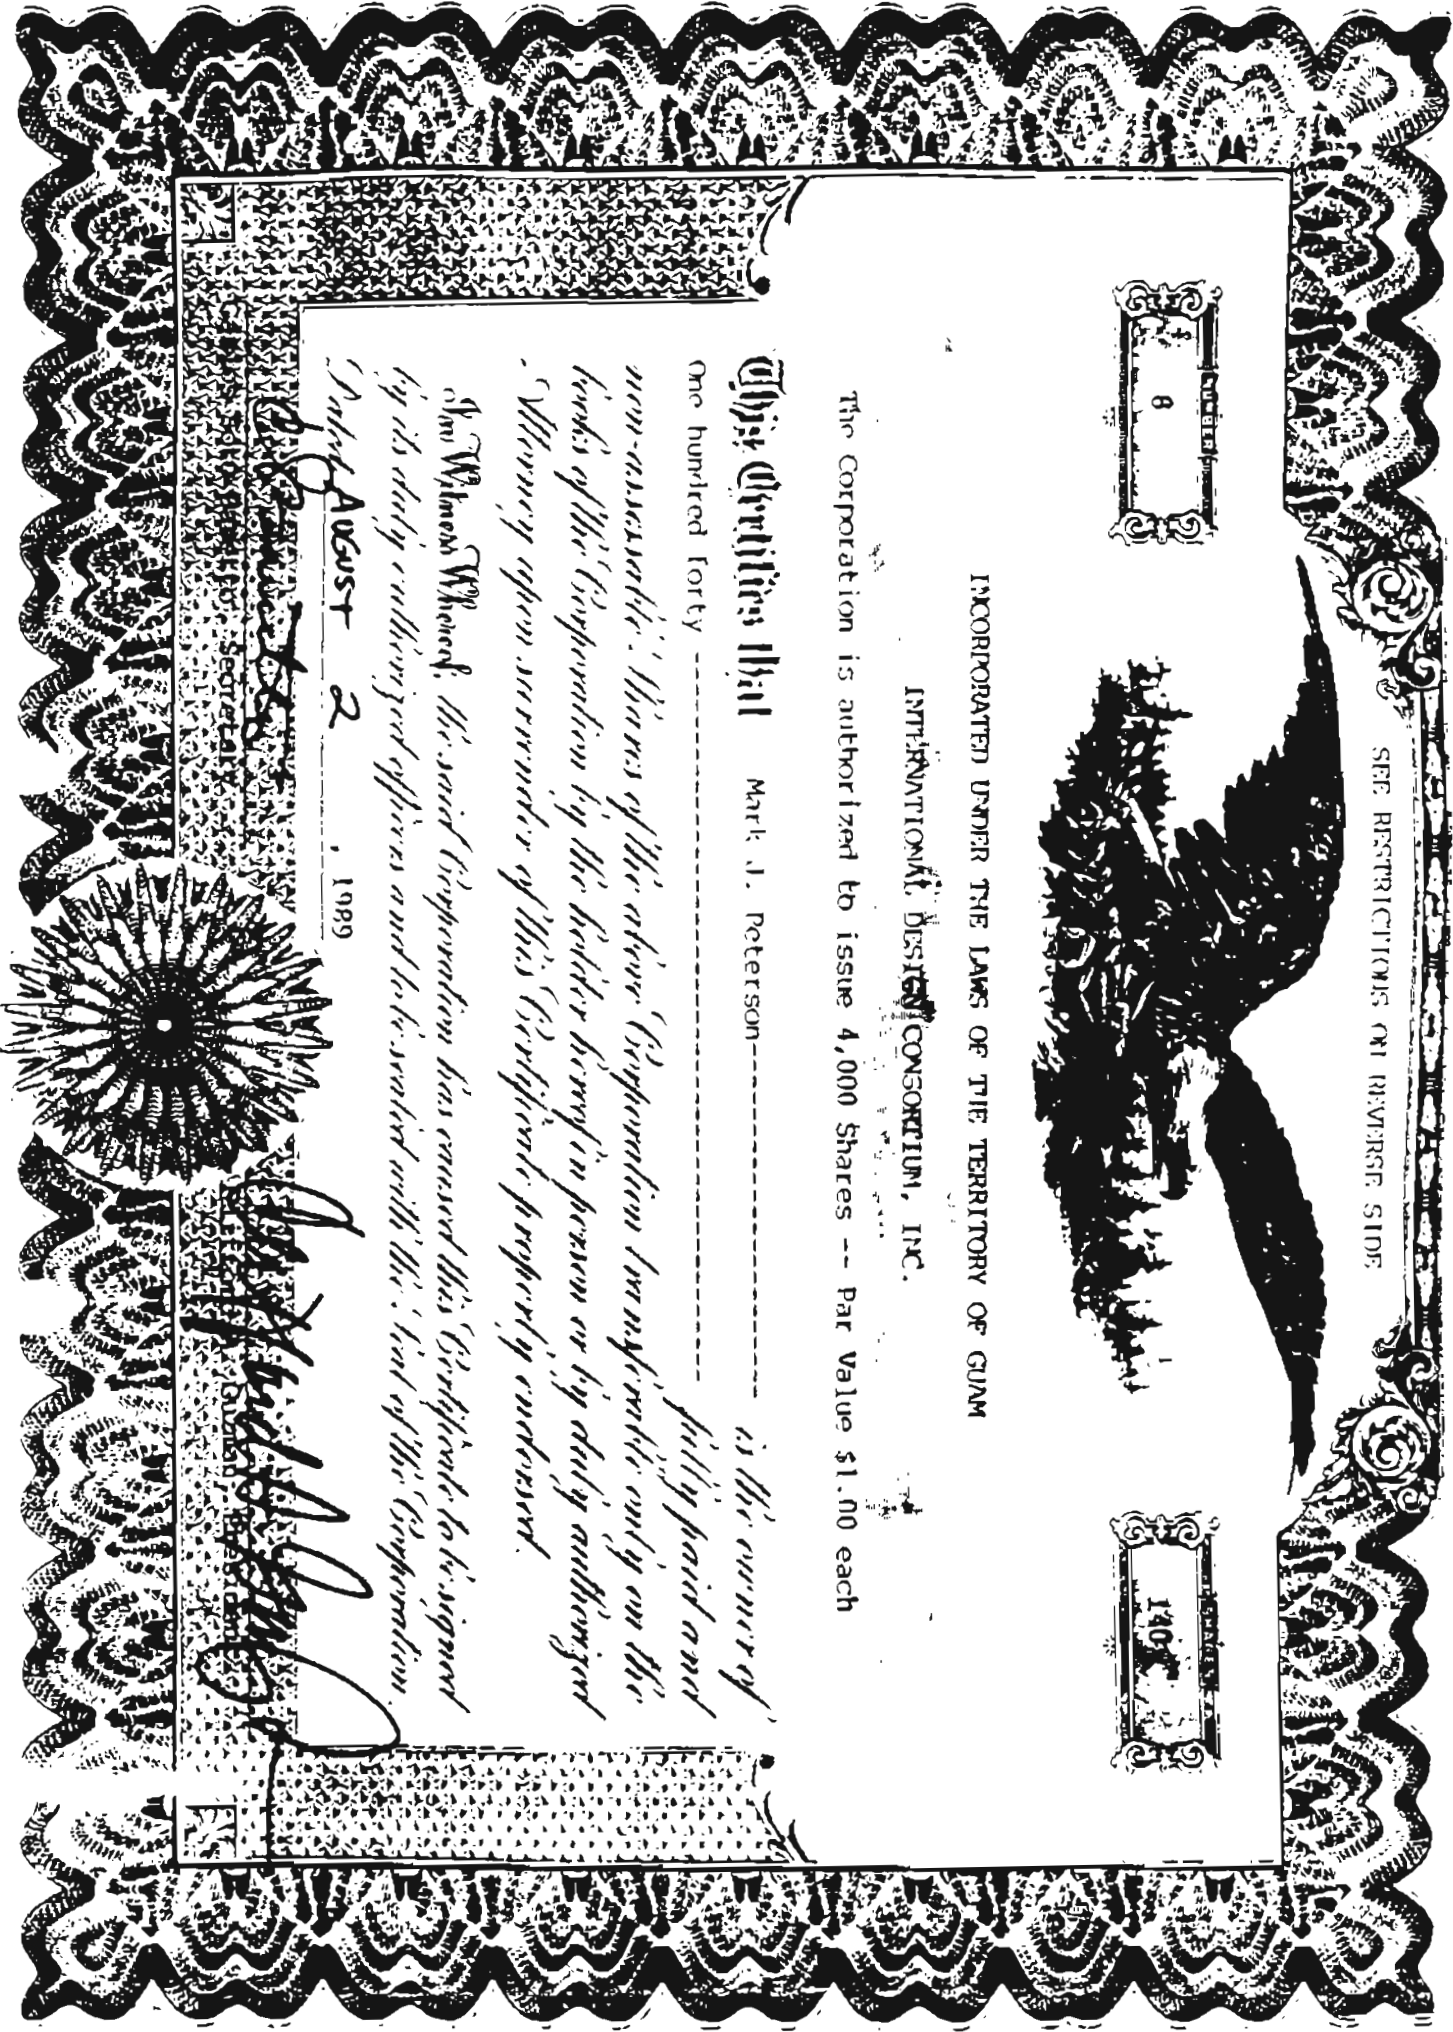 SEE RESTRICTIONS ON REVERSE SIDE
NUMBER
8
SHARES
140
INCORPORATED UNDER THE LAWS OF THE TERRITORY OF GUAM
INTERNATIONAL DESIGN CONSORTIUM, INC.
The Corporation is authorized to issue 4,000 Shares -- Par Value $1.00 each
This Certifies that Mark J. Peterson---------------------------- is the owner of
One hundred forty -------------------------------------------------- fully paid and
non-assessable Shares of the above Corporation transferable only on the
books of the Corporation by the holder hereof in person or by duly authorized
Attorney upon surrender of this Certificate properly endorsed.
In Witness Whereof, the said Corporation has caused this Certificate to be signed
by its duly authorized officers and to be sealed with the Seal of the Corporation.
Dated AUGUST 2, 1989
Secretary
President